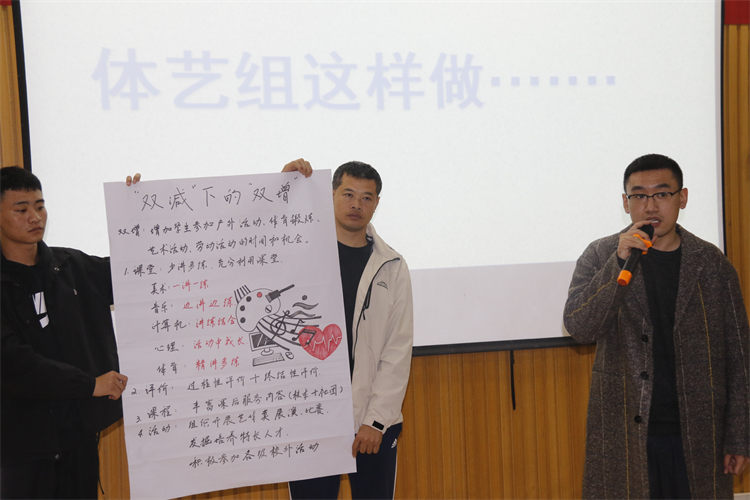 体艺组这样做·······
"双减"下的"双增"
双增：增加学生参加户外活动、体育锻炼、
艺术活动、劳动活动的时间和机会。
1.课堂：少讲多练，充分利用课堂.
美术：一讲一练
音乐：边讲边练
计算机：讲练结合
心理：活动中成长
体育：精讲多练
2.评价：过程性评价+终结性评价.
3.课程：丰富课后服务内容(社团)
4.活动：组织开展艺体类展演、比赛.
发掘培养特长人才.
积极参加各级校外活动